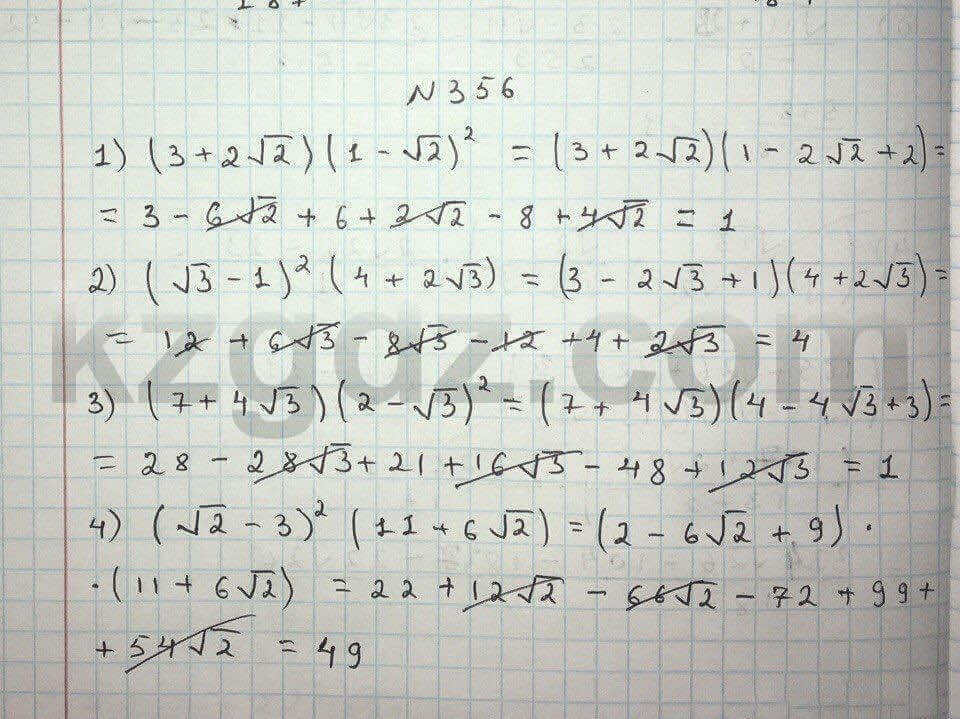 N 356
1) (3 + 2√2)(1 - √2)² = (3 + 2√2)(1 - 2√2 + 2) =
= 3 - 6√2 + 6 + 2√2 - 8 + 4√2 = 1
2) (√3 - 1)² (4 + 2√3) = (3 - 2√3 + 1)(4 + 2√3) =
= 12 + 6√3 - 8√3 - 12 + 4 + 2√3 = 4
kzgdz.com
3) (7 + 4√3)(2 - √3)² = (7 + 4√3)(4 - 4√3 + 3) =
= 28 - 28√3 + 21 + 16√3 - 48 + 12√3 = 1
4) (√2 - 3)² (11 + 6√2) = (2 - 6√2 + 9) ·
· (11 + 6√2) = 22 + 12√2 - 66√2 - 72 + 99 +
+ 54√2 = 49